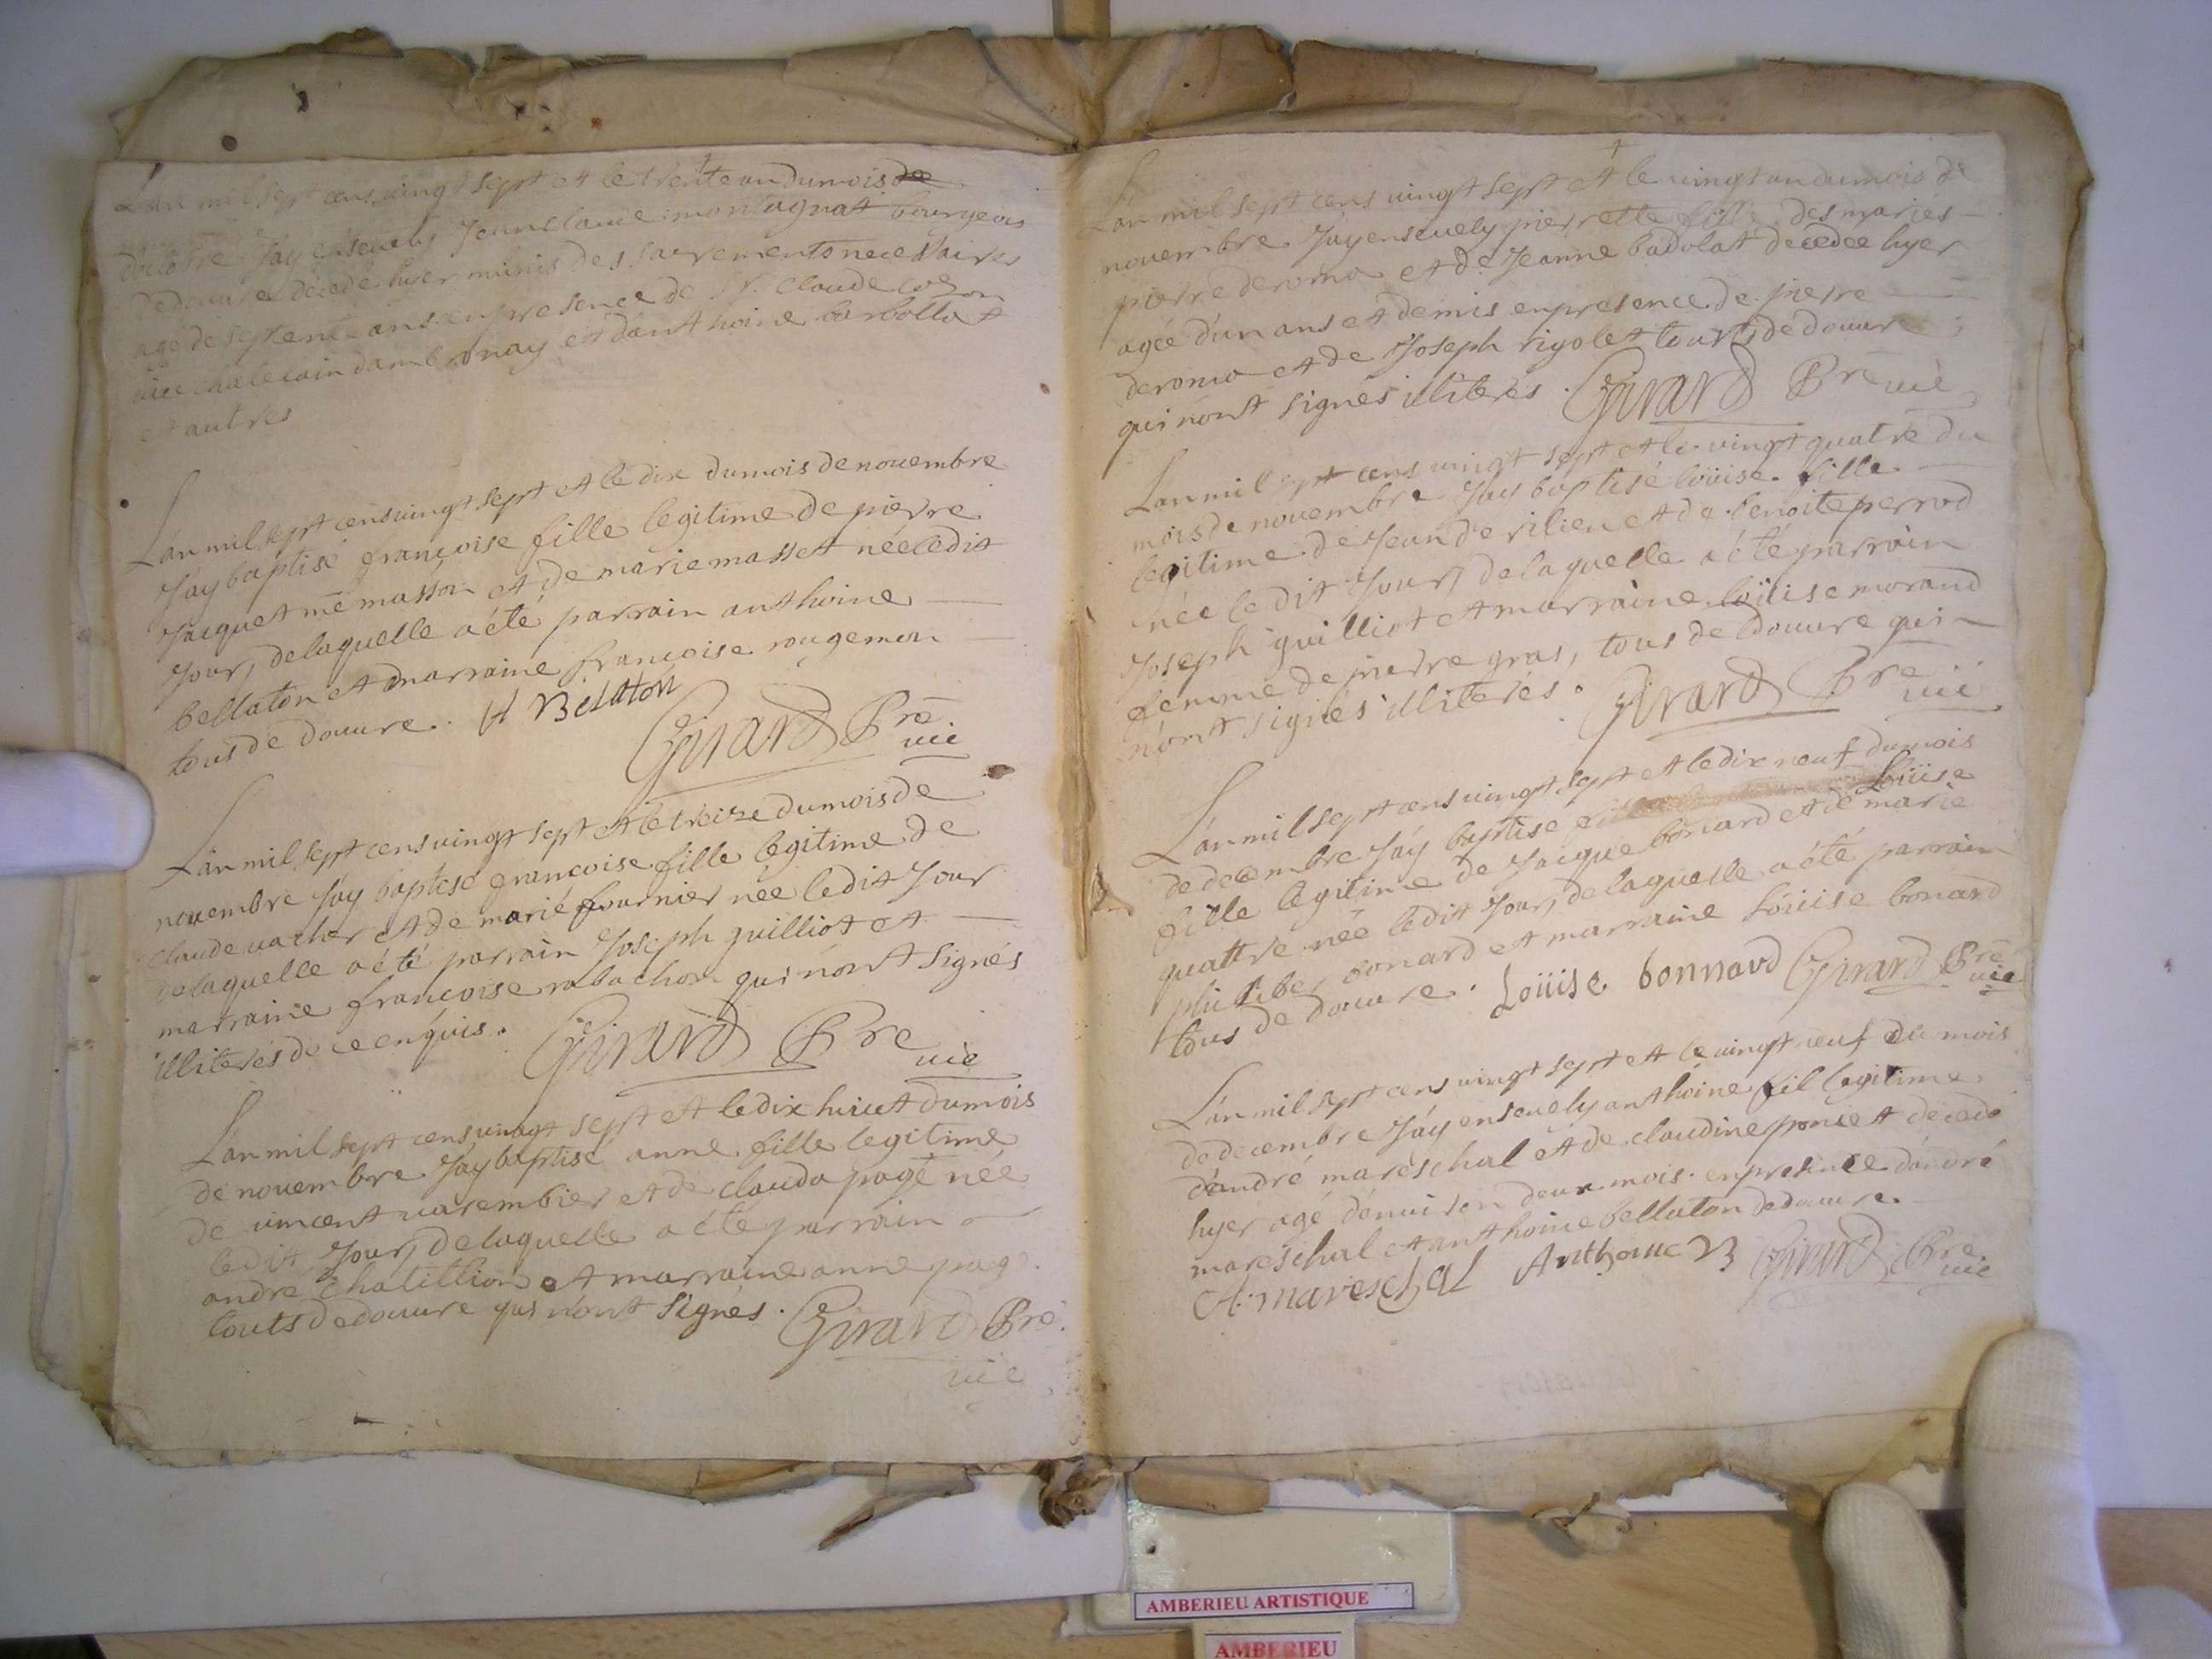 L'an mil sept cens vingt sept et le trente un du mois de
d'octobre J'ay enseuely Jean claude montagnat bourgeois
de douure decedé hyer munis des sacrements necessaires
agé de septente ans en presence de Sr. Claude
vice chatelain d'ambronay et d'anthoine barbollat
et autres
L'an mil sept cens vingt sept et le dix du mois de nouembre
J'ay baptisé françoise fille legitime de pierre
Jacquet me masson et de marie masset née ledit
Jour, de laquelle a été parrain anthoine
bellaton et marraine françoise rougemon
tous de douure. A Belaton
Girard Pre
vic
L'an mil sept cens vingt sept et le treize du mois de
nouembre J'ay baptisé françoise fille legitime de
claude vachor et de marie fournier née ledit Jour
de laquelle a été parrain Joseph guilliot et
marraine françoise rabachon qui n'ont signés
illiterés de ce enquis. Girard Pre
vic
L'an mil sept cens vingt sept et le dix huict du mois
de nouembre J'ay baptisé anne fille legitime
de vincent varembier et de clauda page née
ledit Jour, de laquelle a été parrain
andré chatillion et marraine anne page
touts de douure qui n'ont signés. Girard Pre.
vic
L'an mil sept cens vingt sept et le vingt un du mois de
nouembre J'ay enseuely pierrette fille des mariés
pierre deroma et de Jeanne badolat decedée hyer
agée d'un ans et demis en presence de pierre
deroma et de Joseph rigolet touts de douure
qui n'ont signés illiterés. Girard Pre vic
L'an mil sept cens vingt sept et le vingt quatre du
mois de nouembre J'ay baptisé loüise fille
legitime de Jean de rilieu et de benoite perrod
née ledit Jour, de laquelle a été parrain
Joseph guilliot et marraine loüise morand
femme de pierre gras, tous de douure qui
n'ont signés illiterés. Girard Pre
vic
L'an mil sept cens vingt sept et le dix neuf du mois
de decembre J'ay baptisé Loüise
fille legitime de Jacque bonard et de marie
quattre née ledit Jour, de laquelle a été parrain
philiber bonard et marraine Loüise bonard
tous de douure. Loüise bonnard Girard Pre
vic
L'an mil sept cens vingt sept et le vingt neuf du mois
de decembre J'ay enseuely anthoine fil legitime
d'andré mareschal et de claudine poncet decedé
hyer agé d'enuiron deux mois en presence d'andré
mareschal et anthoine bellaton de douure.
A. mareschal Anthoine B Girard Pre.
vic
AMBERIEU ARTISTIQUE
AMBERIEU